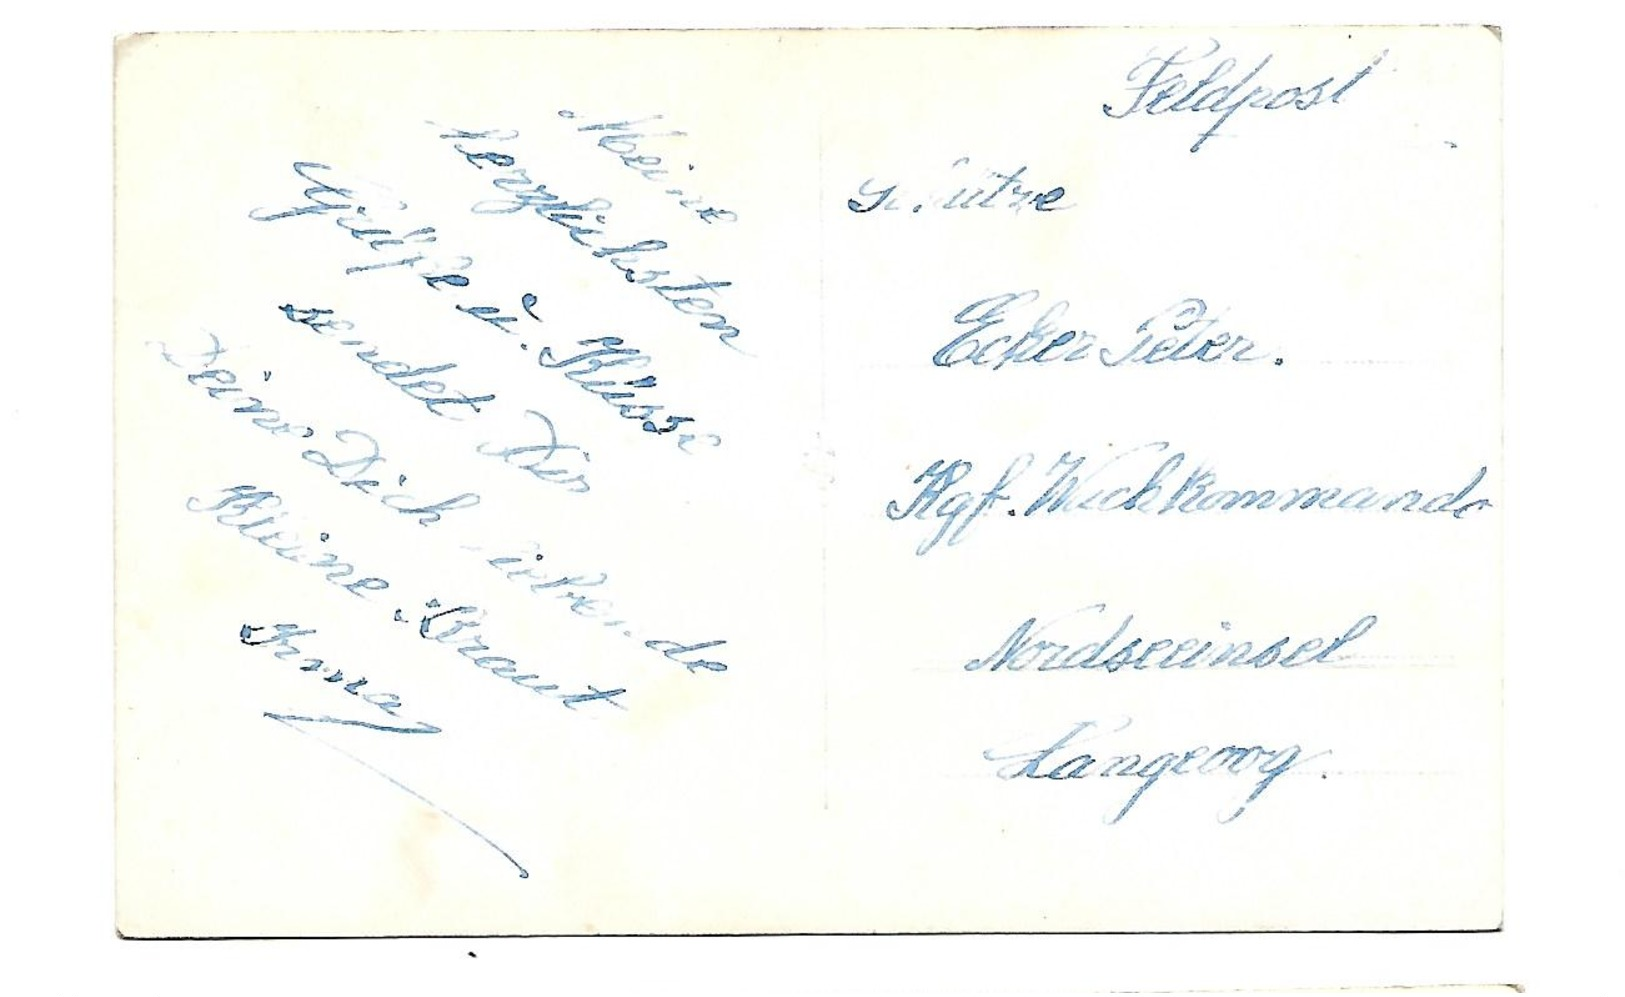 Meine
herzlichsten
Grüße u. Küsse
sendet Dir
Deine Dich liebende
Kleine Braut
Irma
Feldpost
Schütze
Ecker Peter.
Kgf. Wachkommando
Nordseeinsel
Langeoog.